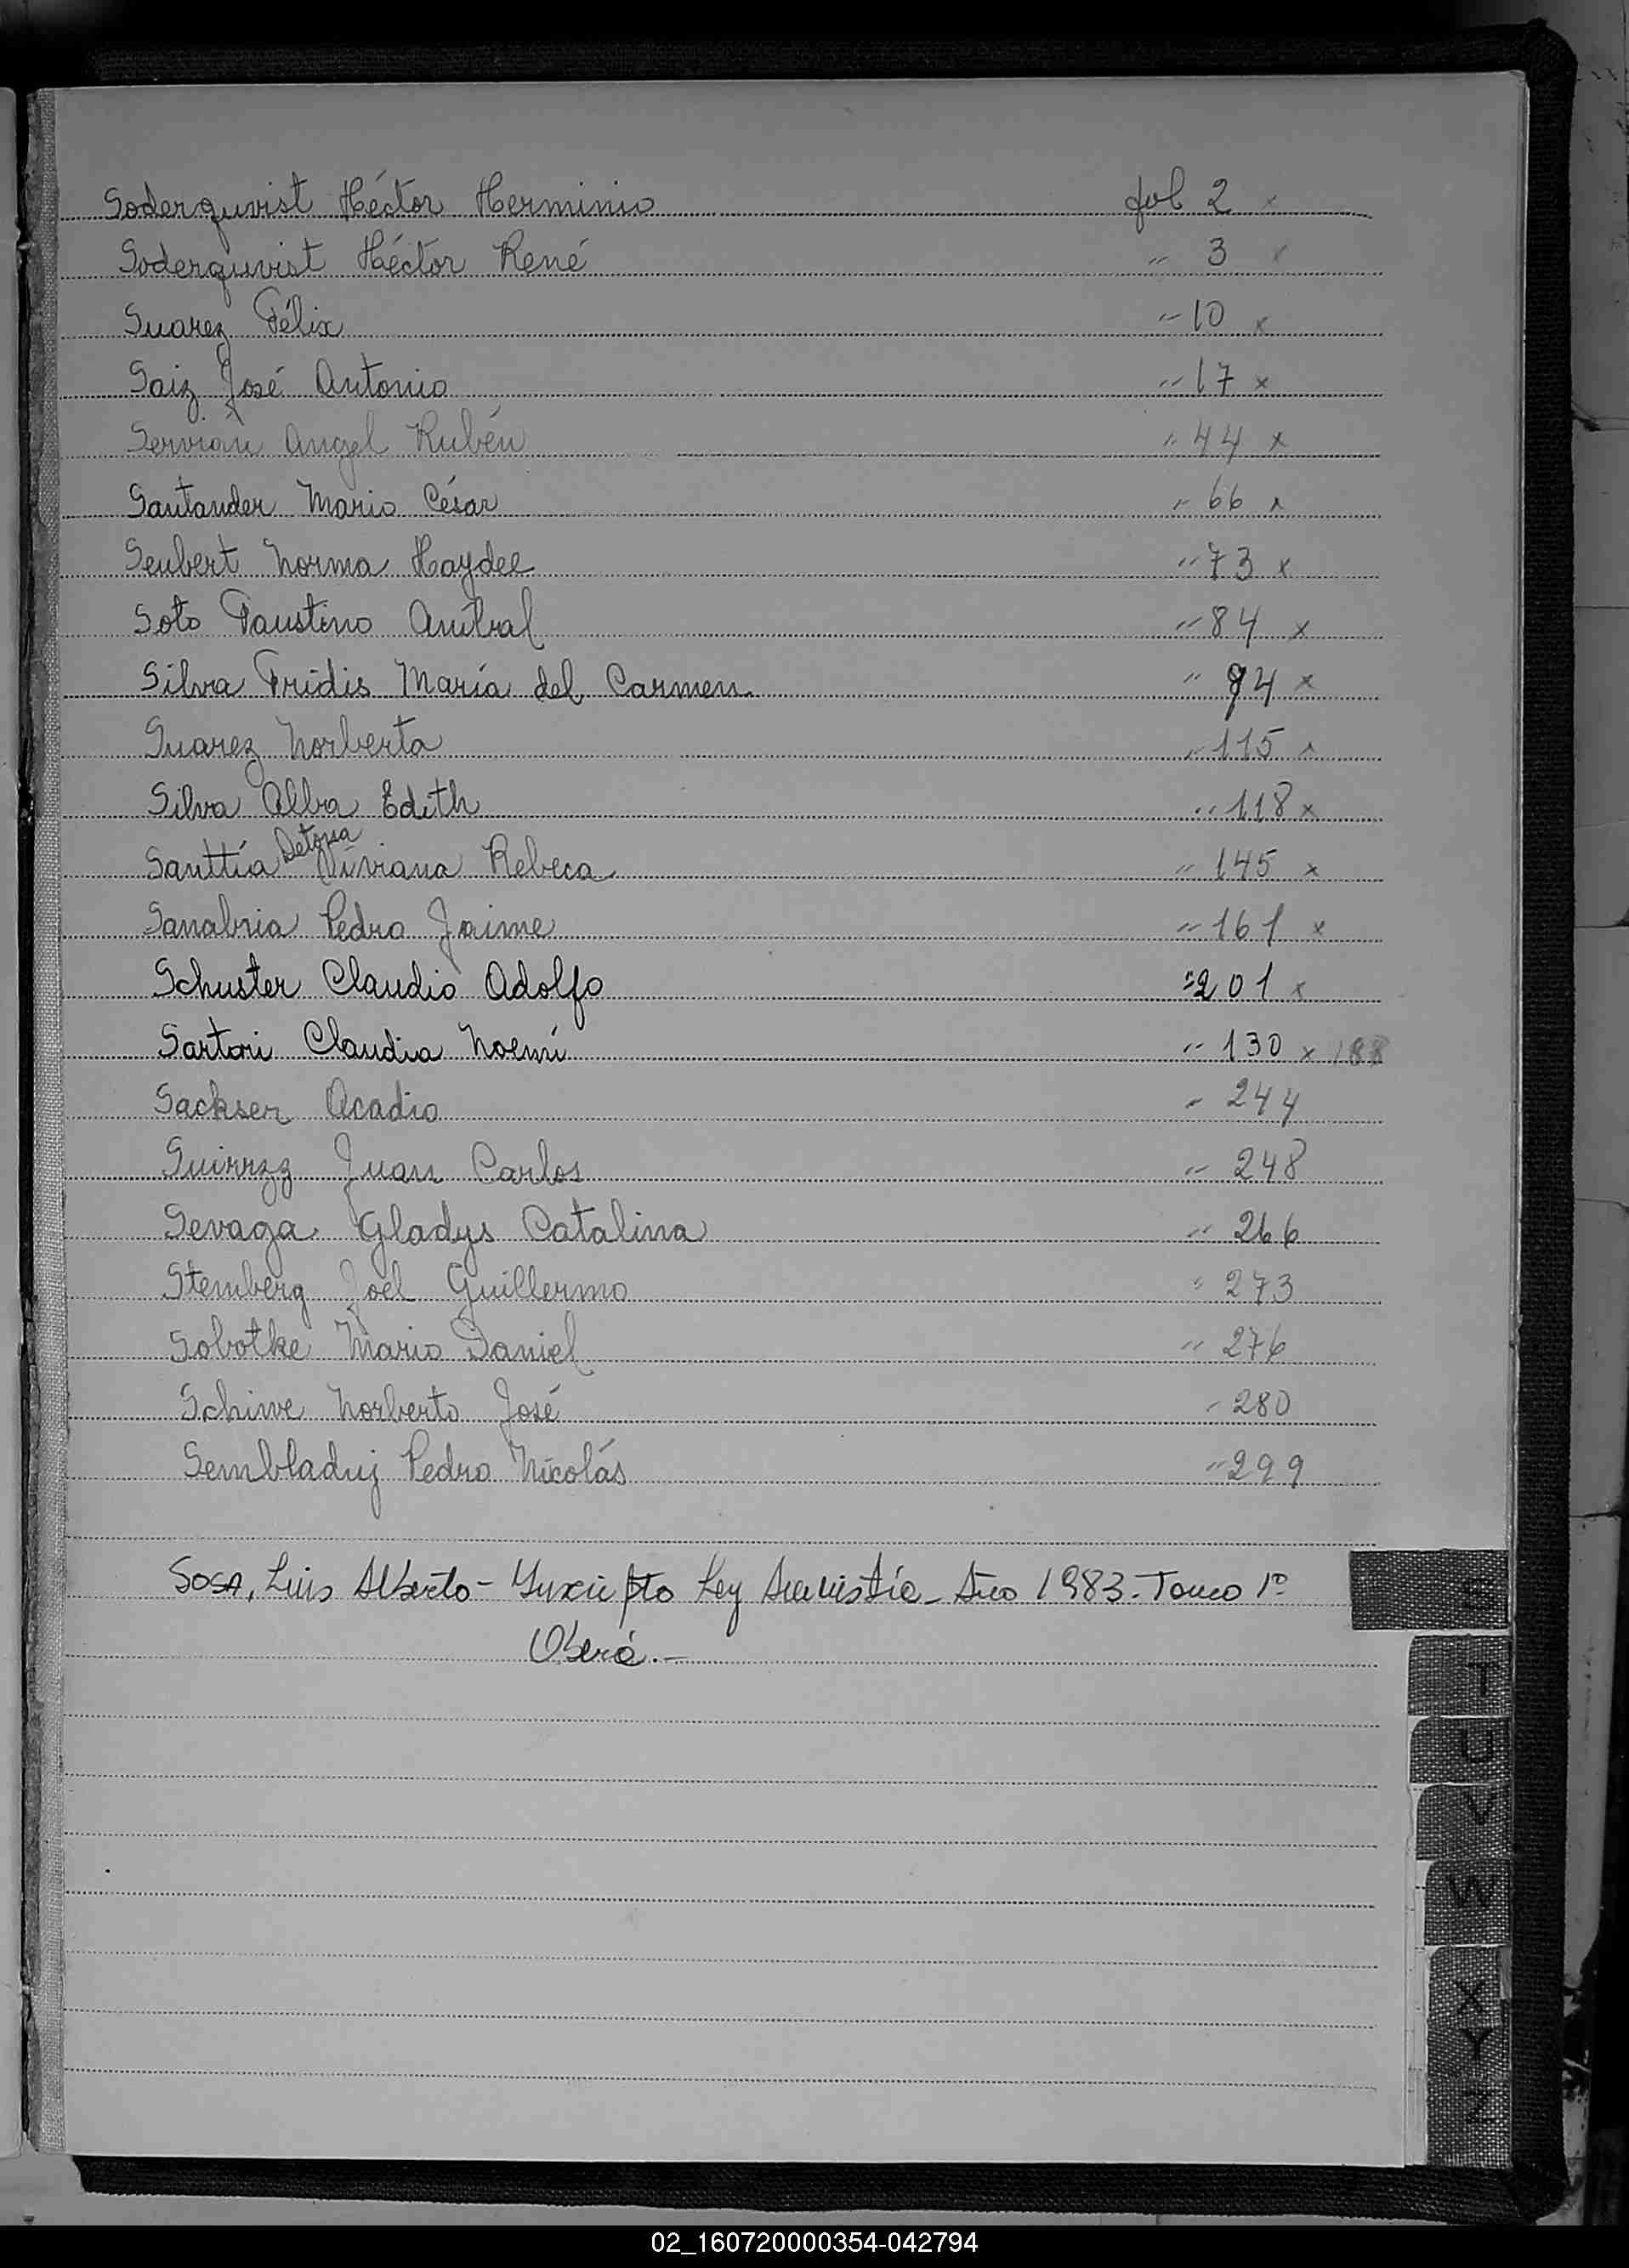 Soderquvist Héctor Herminio fol 2 x
Soderquvist Héctor René " 3 x
Suarez Félix " 10 x
Saiz José Antonio " 17 x
Servian Angel Rubén " 44 x
Santander Mario César " 66 x
Seubert Norma Haydee " 73 x
Soto Faustino Aníbal " 84 x
Silva Fridis María del Carmen " 94 x
Suarez Norberta " 115 x
Silva Alba Edith " 118 x
Santtía Viviana Rebeca " 145 x
Sanabria Pedro Jaime " 161 x
Schuster Claudio Adolfo " 201 x
Sartori Claudia Noemí " 130 x 188
Sackser Acadio " 244
Juan Carlos " 248
Sevaga Gladys Catalina " 266
Stemberg Joel Guillermo " 273
Sobotke Mario Daniel " 276
Schirve Norberto José " 280
Sembladuj Pedro Nicolás " 299
SOSA, Luis Alberto - Ley Amnistía - Año 1983. Tomo 1º
Oberá. -
S
T
U
V
W
X
Y
Z
02_160720000354-042794